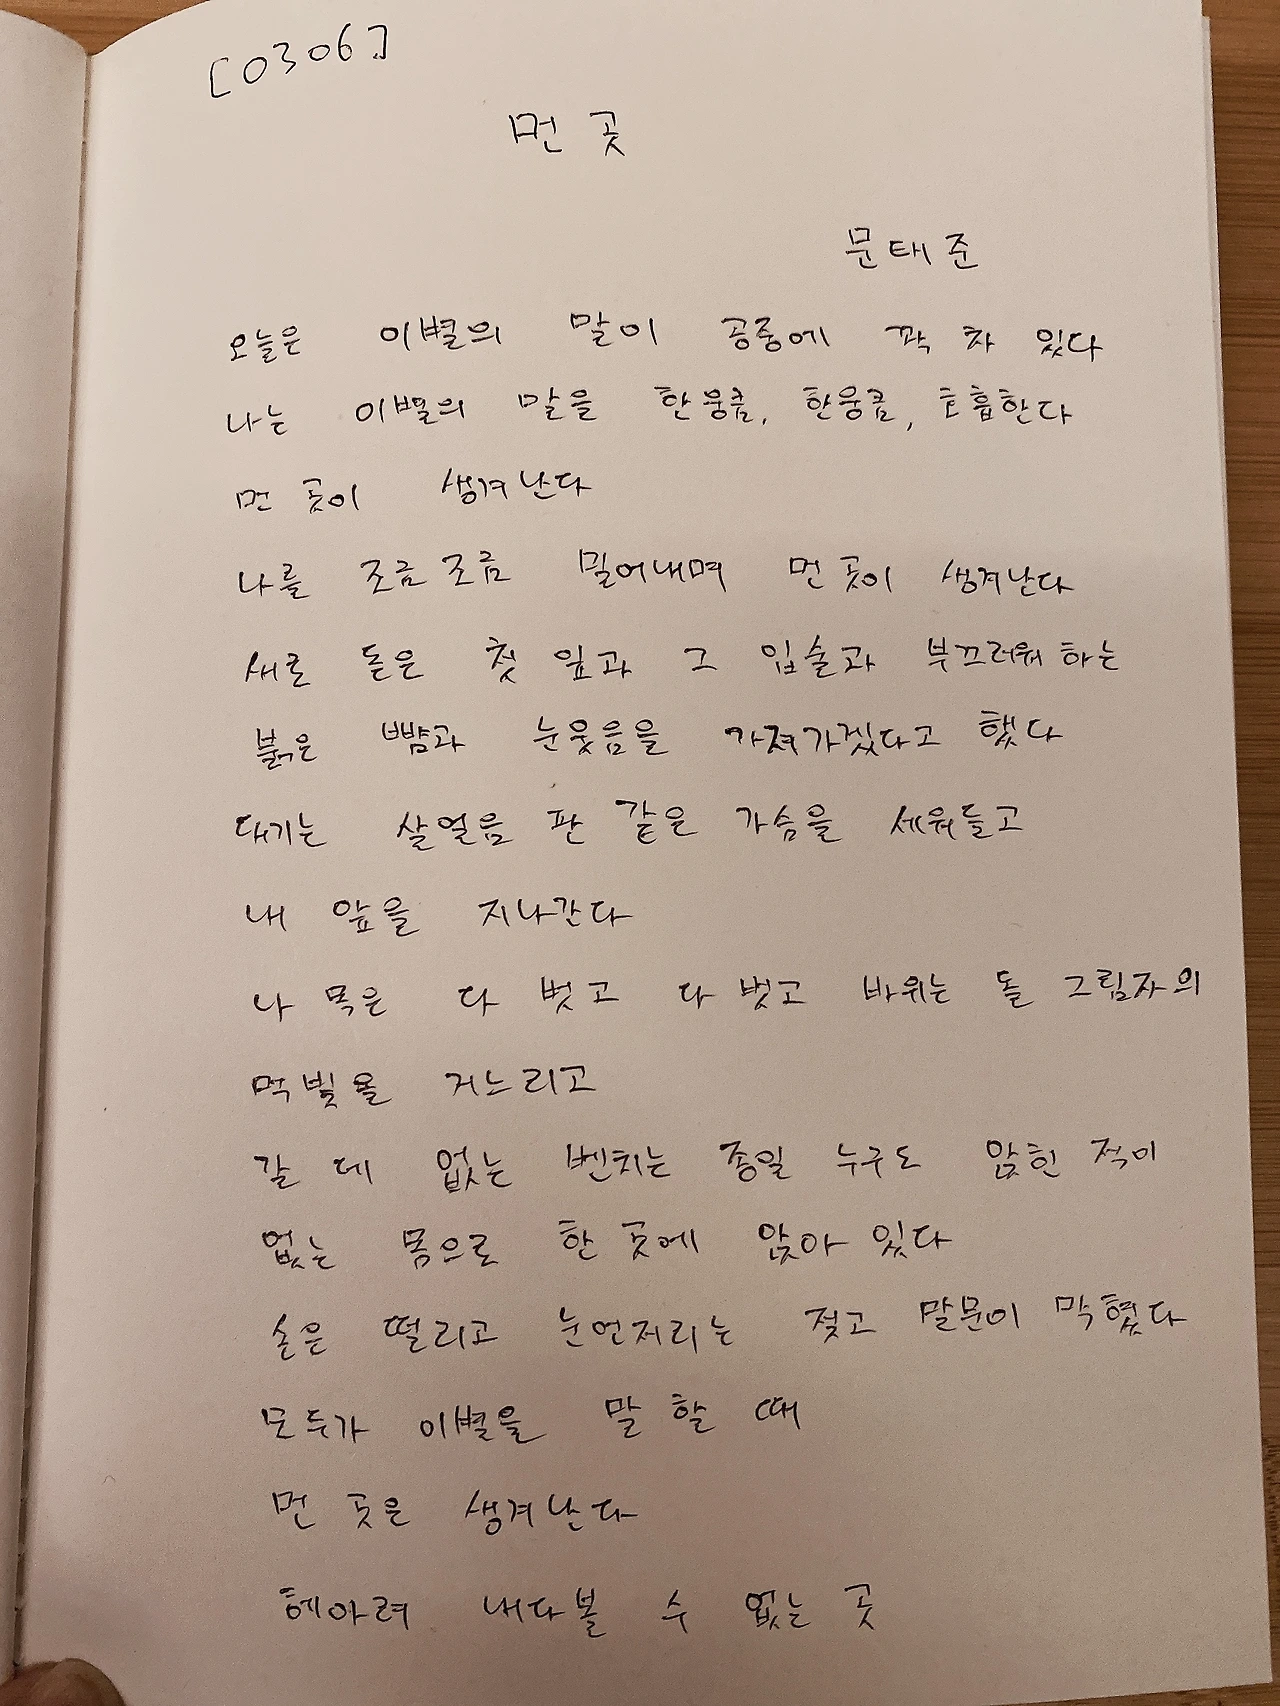 [0306]
먼 곳
문태준
오늘은 이별의 말이 공중에 꽉 차 있다
나는 이별의 말을 한움큼, 한움큼, 호흡한다
먼 곳이 생겨난다
나를 조금조금 밀어내며 먼 곳이 생겨난다
새로 돋은 첫 잎과 그 입술과 부끄러워하는
붉은 뺨과 눈웃음을 가져가겠다고 했다
대기는 살얼음 판 같은 가슴을 세워들고
내 앞을 지나간다
나 목은 다 벗고 다 벗고 바위는 돌 그림자의
먹빛을 거느리고
갈 데 없는 벤치는 종일 누구도 앉힌 적이
없는 몸으로 한 곳에 앉아 있다
손은 떨리고 눈언저리는 젖고 말문이 막혔다
모두가 이별을 말 할 때
먼 곳은 생겨난다
헤아려 내다볼 수 없는 곳